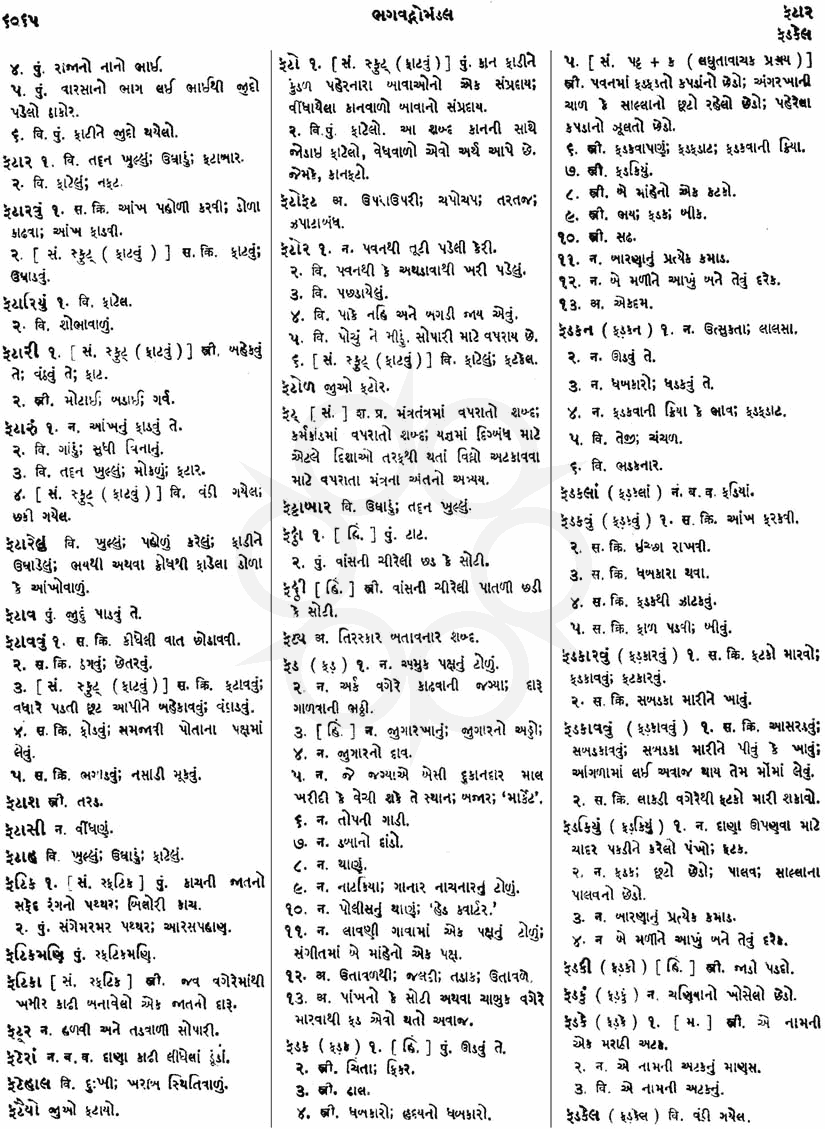 ૬૦૬૫
ભગવદ્ગોમંડલ
ફટાર
ફડકેલ
૪. પું. રાજાનો નાનો ભાઈ.
૫. પું. વારસાનો ભાગ લઈ ભાઈથી જુદો
પડેલો ઠાકોર.
૬. વિ. પું. ફાટીને જુદો થયેલો.
ફટાર ૧. વિ. તદ્દન ખુલ્લું; ઉઘાડું; ફટાબાર.
૨. વિ. ફાટેલું; નફટ.
ફટારવું ૧. સ. ક્રિ. આંખ પહોળી કરવી; ડોળા
કાઢવા; આંખ ફાડવી.
૨. [ સં. સ્ફુટ્ ( ફાટવું ) ] સ. ક્રિ. ફાટવું;
ઉઘાડવું.
ફટારિયું ૧. વિ. ફાટેલ.
૨. વિ. શોભાવાળું.
ફટારી ૧. [ સં. સ્ફુટ્ (ફાટવું) ] સ્ત્રી. બહેકવું
તે; વંઠવું તે; ફાટ.
૨. સ્ત્રી. મોટાઈ; બડાઈ; ગર્વ.
ફટારું ૧. ન. આંખનું ફાડવું તે.
૨. વિ. ગાંડું; સુધી વિનાનું.
૩. વિ. તદ્દન ખુલ્લું; મોકળું; ફટાર.
૪. [ સં. સ્ફુટ્ ( ફાટવું ) ] વિ. વંઠી ગયેલ;
છકી ગયેલ.
ફટારેલું વિ. ખુલ્લું; પહોળું કરેલું; ફાડીને
ઉઘાડેલું; ભયથી અથવા ક્રોધથી ફાડેલા ડોળા
કે આંખોવાળું.
ફટાવ પું. જુદું પાડવું તે.
ફટાવવું ૧. સ. ક્રિ. કીધેલી વાત છોડાવવી.
૨. સ. ક્રિ. ઠગવું; છેતરવું.
૩. [ સં. સ્ફુટ્ (ફાટવું) ] સ. ક્રિ. ફટાવવું;
વધારે પડતી છૂટ આપીને બહેકાવવું; વંઠાડવું.
૪. સ. ક્રિ. ફોડવું; સમજાવી પોતાના પક્ષમાં
લેવું.
૫. સ. ક્રિ. ભગાડવું; નસાડી મૂકવું.
ફટાશ સ્ત્રી. તરડ.
ફટાસી ન. વીંધણું.
ફટાહ વિ. ખુલ્લું; ઉઘાડું; ફાટેલું.
ફટિક ૧. [ સં. સ્ફટિક ] પું. કાચની જાતનો
સફેદ રંગનો પથ્થર; બિલોરી કાચ.
૨. પું. સંગેમરમર પથ્થર; આરસપહાણ.
ફટિકમણિ પું. સ્ફટિકમણિ.
ફટિકા [ સં. સ્ફટિક ] સ્ત્રી. જવ વગેરેમાંથી
ખમીર કાઢી બનાવેલો એક જાતનો દારૂ.
ફટૂર ન. હળવી અને તડવાળી સોપારી.
ફટેરાં ન. બ. વ. દાણા કાઢી લીધેલાં ડૂંડાં.
ફટેહાલ વિ. દુઃખી; ખરાબ સ્થિતિવાળું.
ફટૈયો જુઓ ફટાયો.
ફટો ૧. [ સં. સ્ફુટ્ ( ફાટવું ) ] પું. કાન ફાડીને
કુંડળ પહેરનારા બાવાઓનો એક સંપ્રદાય;
વીંધાયેલા કાનવાળો બાવાનો સંપ્રદાય.
૨. વિ.પું. ફાટેલો. આ શબ્દ કાનની સાથે
જોડાઈ ફાટેલો, વેધવાળો એવો અર્થ આપે છે.
જેમકે, કાનફટો.
ફટોફટ અ. ઉપરાઉપરી; ચપોચપ; તરતજ;
ઝપાટાબંધ.
ફટોર ૧. ન. પવનથી તૂટી પડેલી કેરી.
૨. વિ. પવનથી કે અથડાવાથી ખરી પડેલું.
૩. વિ. પછડાયેલું.
૪. વિ. પાકે નહિ અને બગડી જાય એવું.
૫. વિ. પોચું ને મીઠું. સોપારી માટે વપરાય છે.
૬. [ સં. સ્ફુટ્ (ફાટવું) ] વિ. ફાટેલું; ફટકેલ.
ફટોળ જુઓ ફટોર.
ફટ્ [ સં. ] શ. પ્ર. મંત્રતંત્રમાં વપરાતો શબ્દ;
કર્મકાંડમાં વપરાતો શબ્દ; યજ્ઞમાં દિગ્બંધ માટે
એટલે દિશાઓ તરફથી થતાં વિઘ્નો અટકાવવા
માટે વપરાતા મંત્રના અંતનો અવ્યય.
ફટ્ટાબાર વિ. ઉઘાડું; તદ્દન ખુલ્લું.
ફટ્ઠા ૧. [ હિં. ] પું. ટાટ.
૨. પું. વાંસની ચીરેલી છડ કે સોટી.
ફટ્ઠી [ હિં. ] સ્ત્રી. વાંસની ચીરેલી પાતળી છડી
કે સોટી.
ફટ્ય અ. તિરસ્કાર બતાવનાર શબ્દ.
ફડ ( ફડ઼ ) ૧. ન. અમુક પક્ષનું ટોળું.
૨. ન. અર્ક વગેરે કાઢવાની જગ્યા; દારૂ
ગાળવાની ભઠ્ઠી.
૩. [ હિં. ] ન. જુગારખાનું; જુગારનો અડ્ડો;
૪. ન. જુગારનો દાવ.
૫. ન. જે જગ્યાએ બેસી દુકાનદાર માલ
ખરીદી કે વેચી શકે તે સ્થાન; બજાર; 'માર્કેટ'.
૬. ન. તોપની ગાડી.
૭. ન. ડબાનો દાંડો.
૮. ન. થાણું.
૯. ન. નાટકિયા; ગાનાર નાચનારનું ટોળું.
૧૦. ન. પોલીસનું થાણું; 'હેડ ક્વાર્ટર.'
૧૧. ન. લાવણી ગાવામાં એક પક્ષનું ટોળું;
સંગીતમાં બે માંહેનો એક પક્ષ.
૧૨. અ. ઉતાવળથી; જલદી; તડાક; ઉતાવળે.
૧૩. અ. પાંખનો કે સોટી અથવા ચાબુક વગેરે
મારવાથી ફડ એવો થતો અવાજ.
ફડક ( ફડ઼ક ) ૧. [ હિં. ] પું. ઊડવું તે.
૨. સ્ત્રી. ચિંતા; ફિકર.
૩. સ્ત્રી. ઢાલ.
૪. સ્ત્રી. ધબકારો; હૃદયનો ધબકારો.
૫. [ સં. પટ્ટ + ક ( લઘુતાવાચક પ્રત્યય ) ]
સ્ત્રી. પવનમાં ફડફડતો કપડાંનો છેડો; અંગરખાની
ચાળ કે સાલ્લાનો છૂટો રહેલો છેડો; પહેરેલા
કપડાનો ઝૂલતો છેડો.
૬. સ્ત્રી. ફડકવાપણું; ફડફડાટ; ફડકવાની ક્રિયા.
૭. સ્ત્રી. ફડકિયું.
૮. સ્ત્રી. બે માંહેનો એક કટકો.
૯. સ્ત્રી. ભય; ફડક; બીક.
૧૦. સ્ત્રી. સઢ.
૧૧. ન. બારણાનું પ્રત્યેક કમાડ.
૧૨. ન. બે મળીને આખું બને તેવું દરેક.
૧૩. અ. એકદમ.
ફડકન ( ફડ઼કન ) ૧. ન. ઉત્સુકતા; લાલસા.
૨. ન. ઊડવું તે.
૩. ન. ધબકારો; ધડકવું તે.
૪. ન. ફડકવાની ક્રિયા કે ભાવ; ફડફડાટ.
૫. વિ. તેજી; ચંચળ.
૬. વિ. ભડકનાર.
ફડકલાં ( ફડ઼કલાં ) નં. બ. વ. ફડિયાં.
ફડકવું ( ફડ઼કવું ) ૧. સ. ક્રિ. આંખ ફરકવી.
૨. સ. ક્રિ. ઇચ્છા રાખવી.
૩. સ. ક્રિ. ધબકારા થવા.
૪. સ. ક્રિ. ફડકથી ઝાટકવું.
૫. સ. ક્રિ. ફાળ પડવી; બીવું.
ફડકારવું ( ફડ઼કારવું ) ૧. સ. ક્રિ. ફટકો મારવો;
ફડકાવવું; ફટકારવું.
૨. સ. ક્રિ. સબડકા મારીને ખાવું.
ફડકાવવું ( ફડ઼કાવવું ) ૧. સ. ક્રિ. આસરડવું;
સબડકાવવું; સબડકા મારીને પીવું કે ખાવું;
આંગળામાં લઈ અવાજ થાય તેમ મોંમાં લેવું.
૨. સ. ક્રિ. લાકડી વગેરેથી ફટકો મારી શકાવો.
ફડકિયું ( ફડ઼કિયું ) ૧. ન. દાણા ઊપણવા માટે
ચાદર પકડીને કરેલો પંખો; ફટક.
૨. ન. ફડક; છૂટો છેડો; પાલવ; સાલ્લાના
પાલવનો છેડો.
૩. ન. બારણાનું પ્રત્યેક કમાડ.
૪. ન બે મળીને આખું બને તેવું દરેક.
ફડકી ( ફડ઼કી ) [ હિં. ] સ્ત્રી. જાડો પડદો.
ફડકું ( ફડ઼કું ) ન. ચણિયાનો ખોસેલો છેડો.
ફડકે ( ફડ઼કે ) ૧. [ મ. ] સ્ત્રી. એ નામની
એક મરાઠી અટક.
૨. ન. એ નામની અટકનું માણસ.
૩. વિ. એ નામની અટકનું.
ફડકેલ ( ફડ઼કેલ ) વિ. વંઠી ગયેલ.